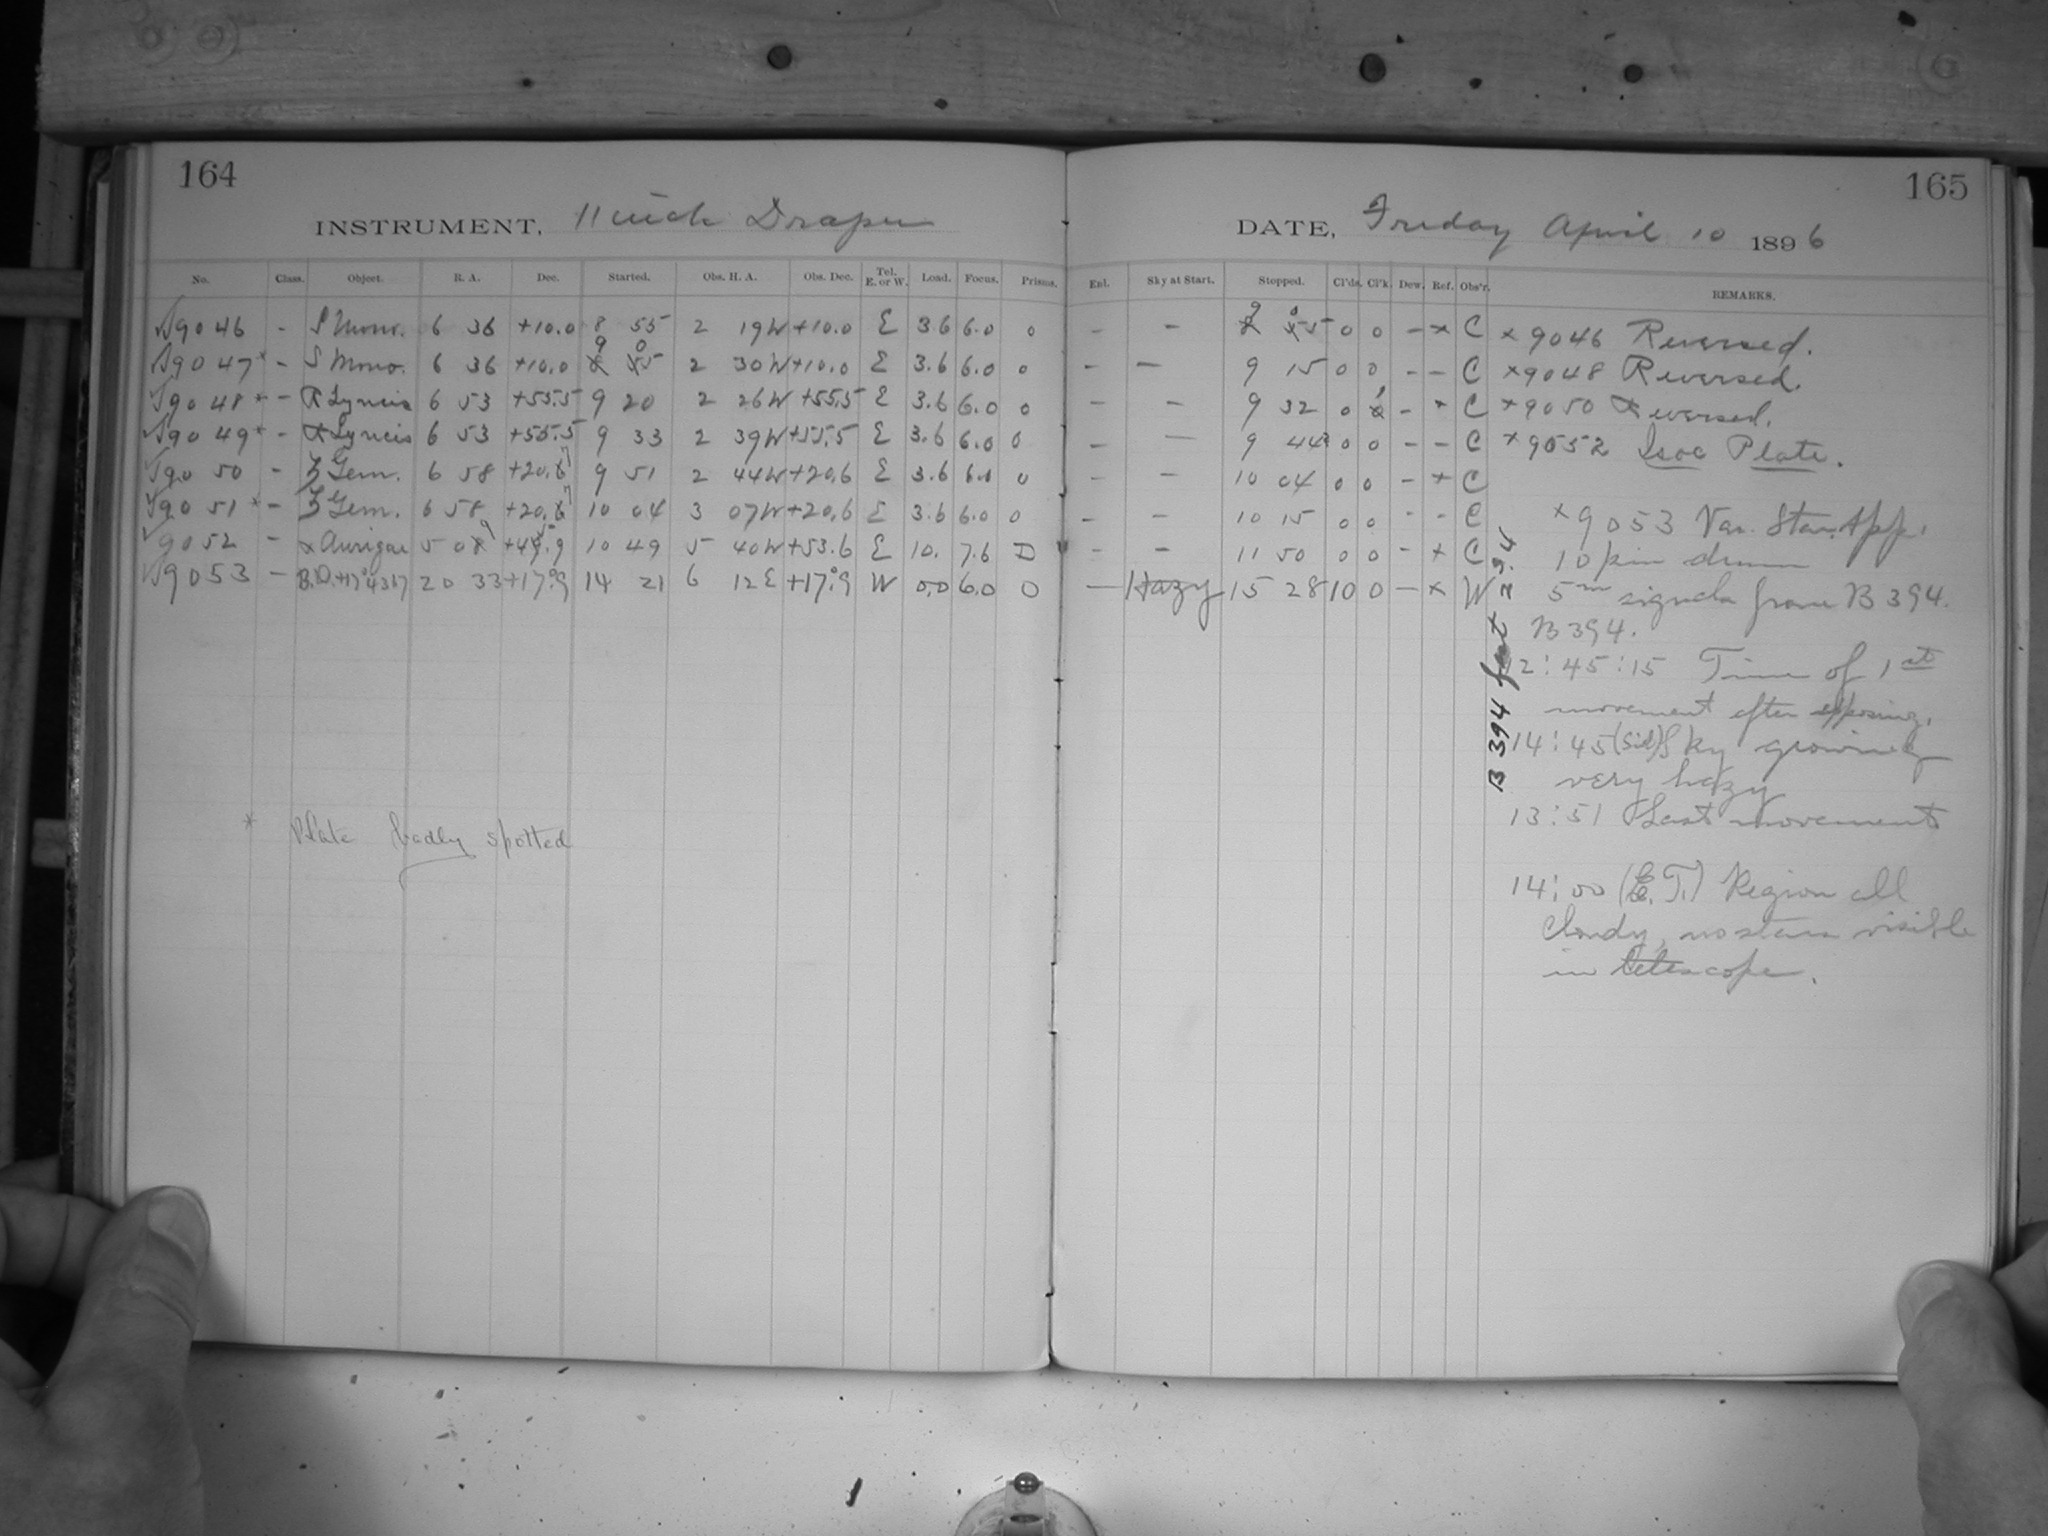 164
INSTRUMENT, 11 inch Draper
No. Class. Object. R. A. Dec. Started. Obs. H. A. Obs. Dec. Tel. E. or W. Load. Focus. Prisms.
9046 - S Mono. 6 36 +10.0 8 55 2 19W +10.0 E 3.6 6.0 0
9 0
9047* - S Mono. 6 36 +10.0 2 30W +10.0 E 3.6 6.0 0
9048* - R Lyncis 6 53 +55.5 9 20 2 26W +55.5 E 3.6 6.0 0
9049* - R Lyncis 6 53 +55.5 9 33 2 39W +55.5 E 3.6 6.0 0
9050 - Gem. 6 58 +20.7 9 51 2 44W +20.6 E 3.6 6.0 0
9051* - Gem. 6 58 +20.7 10 04 3 07W +20.6 E 3.6 6.0 0
9052 - α Aurigae 5 09 10 49 5 40W +53.6 E 10. 7.6 D
9053 - B.D.+17°4367 20 33 +17.°9 14 21 6 12E +17.°9 W 0.0 6.0 0
* Plate badly spotted
165
DATE, Friday April 10 1896
Enl. Sky at Start. Stopped. Cl'ds. Cl'k. Dew. Ref. Obs'r. REMARKS.
- - 9 0 0 0 - x C x 9046 Reversed.
- - 9 15 0 0 - - C x 9048 Reversed.
- - 9 32 0 1 - x C x 9050 Reversed.
- - 9 44 0 0 - - C x 9052 Isoc Plate.
- - 10 04 0 0 - x C
- - 10 15 0 0 - - C x 9053 Var. Star App.
- - 11 50 0 0 - x C 10 pin drum
- Hazy 15 28 10 0 - x W 5m signals from B 394.
B 394.
12:45:15 Time of 1st
movement after exposing.
14:45 (Sid) Sky growing
very hazy
13:51 Last movement
14:00 (E.T.) Region all
Cloudy, no stars visible
in telescope.
B 394